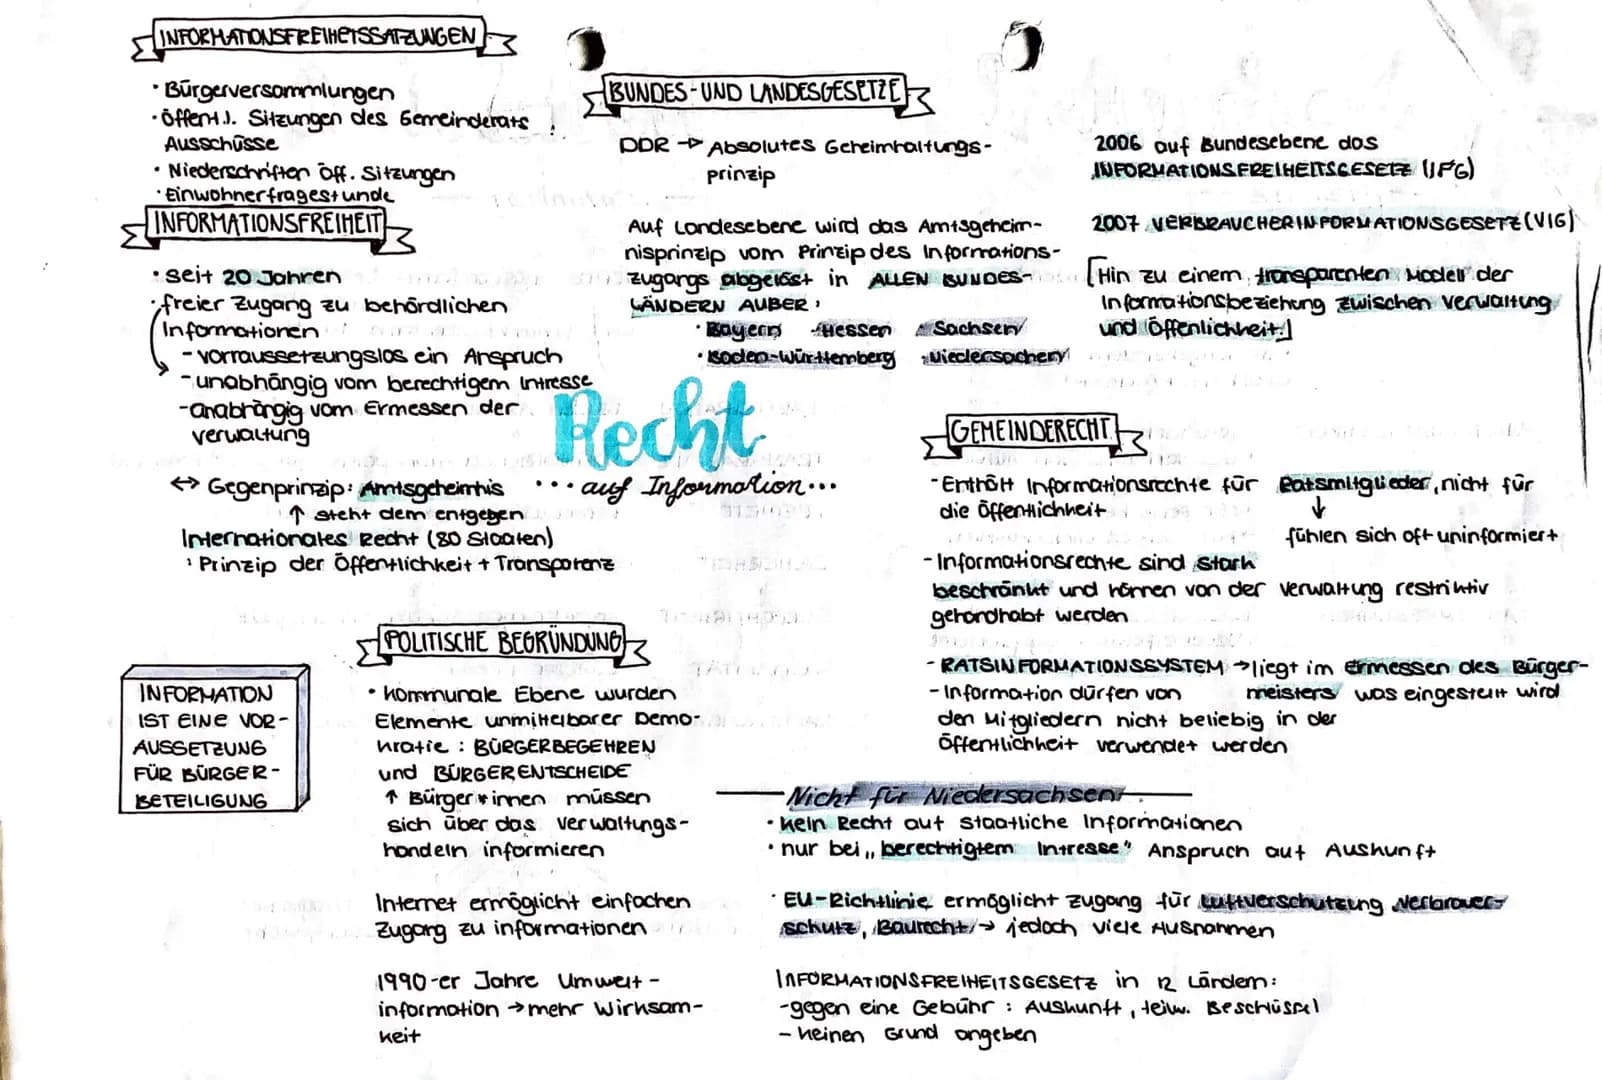 INFORMATIONSFREIHEITSSATZUNGEN
• Bürgerversammlungen
• öffentl. Sitzungen des Gemeinderats,
Ausschüsse
• Niederschriften öff. Sitzungen
• Einwohnerfragestunde
INFORMATIONSFREIHEIT
• seit 20 Jahren
• freier Zugang zu behördlichen
Informationen
- vorraussetzungslos ein Anspruch
- unabhängig vom berechtigem Intresse
- unabhängig vom Ermessen der
Verwaltung
↔ Gegenprinzip: Amtsgeheimnis
↑ steht dem entgegen
Internationales Recht (80 Staaten)
• Prinzip der Öffentlichkeit + Transparenz
BUNDES- UND LANDESGESETZE
DDR → Absolutes Geheimhaltungs-
prinzip
Auf Landesebene wird das Amtsgeheim-
nisprinzip vom Prinzip des Informations-
zugangs abgelöst in ALLEN BUNDES-
LÄNDERN AUßER:
• Bayern • Hessen • Sachsen
• Baden-Württemberg • Niedersachen
2006 auf Bundesebene das
INFORMATIONSFREIHEITSGESETZ (IFG)
2007 VERBRAUCHERINFORMATIONSGESETZ (VIG)
[Hin zu einem transparenten Modell der
Informationsbeziehung zwischen Verwaltung
und Öffenlichkeit]
Recht
... auf Information...
GEMEINDERECHT
- Enthält Informationsrechte für Ratsmitglieder, nicht für
die Öffentlichkeit
↓
fühlen sich oft uninformiert
- Informationsrechte sind stark
beschränkt und können von der Verwaltung restriktiv
gehandhabt werden
- RATSINFORMATIONSSYSTEM → liegt im Ermessen des Bürger-
meisters was eingestellt wird
- Information dürfen von
den Mitgliedern nicht beliebig in der
Öffentlichkeit verwendet werden
POLITISCHE BEGRÜNDUNG
• kommunale Ebene wurden
Elemente unmittelbarer Demo-
kratie: BÜRGERBEGEHREN
und BÜRGERENTSCHEIDE
↑ Bürger*innen müssen
sich über das Verwaltungs-
handeln informieren
Internet ermöglicht einfachen
Zugang zu informationen
1990-er Jahre Umwelt-
information → mehr Wirksam-
keit
INFORMATION
IST EINE VOR-
AUSSETZUNG
FÜR BÜRGER-
BETEILIGUNG
Nicht für Niedersachsen
• kein Recht auf staatliche Informationen
• nur bei „berechtigtem Intresse" Anspruch auf Auskunft
• EU-Richtlinie ermöglicht Zugang für Luftverschutzung, Verbrauer-
schutz, Baurecht → jedoch viele Ausnahmen
INFORMATIONSFREIHEITSGESETZ in 12 Ländern:
- gegen eine Gebühr: Auskunft, teilw.
- keinen Grund angeben